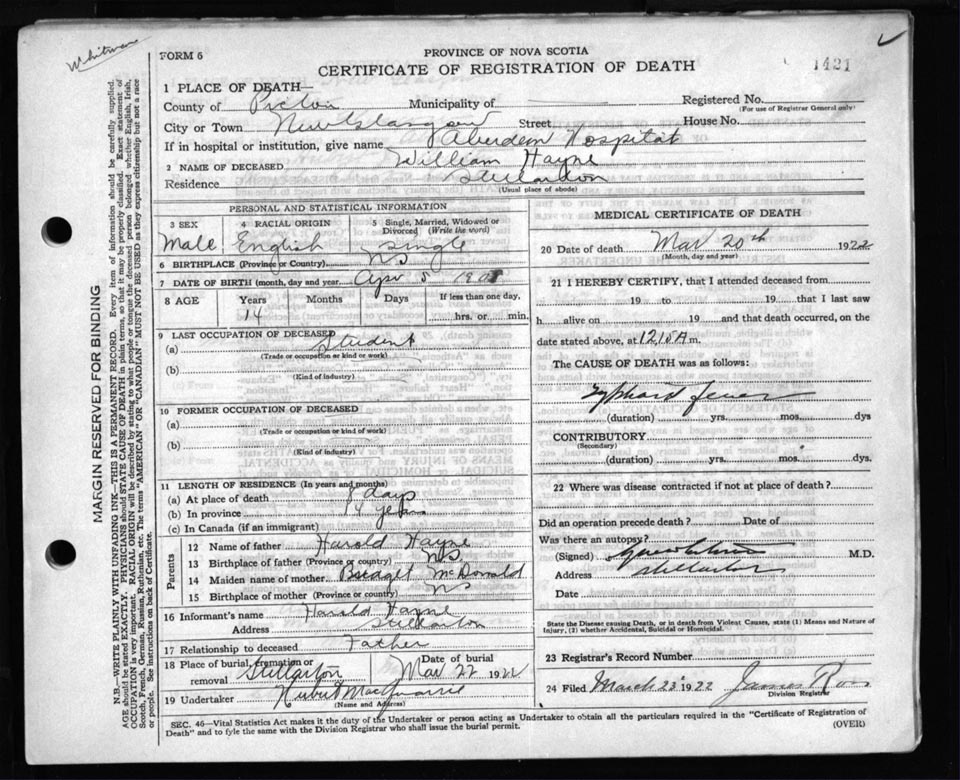 Whitman
FORM 6
PROVINCE OF NOVA SCOTIA
CERTIFICATE OF REGISTRATION OF DEATH
1421
1 PLACE OF DEATH—
County of Pictou Municipality of Registered No.
(For use of Registrar General only)
City or Town New Glasgow Street House No.
If in hospital or institution, give name Aberdeen Hospital
2 NAME OF DECEASED William Hayne
Residence Stellarton
(Usual place of abode)
PERSONAL AND STATISTICAL INFORMATION
3 SEX 4 RACIAL ORIGIN 5 Single, Married, Widowed or Divorced (Write the word)
Male English single
6 BIRTHPLACE (Province or Country) NS
7 DATE OF BIRTH (month, day and year) Apr 5
8 AGE Years Months Days If less than one day,
14 hrs. or min.
9 LAST OCCUPATION OF DECEASED
(a) Student
(Trade or occupation or kind or work)
(b)
(Kind of industry)
10 FORMER OCCUPATION OF DECEASED
(a)
(Trade or occupation or kind of work)
(b)
(Kind of industry)
11 LENGTH OF RESIDENCE (In years and months)
(a) At place of death 8 days
(b) In province 14 years
(c) In Canada (if an immigrant)
Parents
12 Name of father Harold Hayne
13 Birthplace of father (Province or country) NS
14 Maiden name of mother Bridget McDonald
15 Birthplace of mother (Province or country) NS
16 Informant's name Harold Hayne
Address Stellarton
17 Relationship to deceased Father
18 Place of burial, cremation or removal Stellarton Date of burial Mar 22 1922
19 Undertaker Hubert MacQuarrie
(Name and Address)
MEDICAL CERTIFICATE OF DEATH
20 Date of death Mar 20th 1922
(Month, day and year)
21 I HEREBY CERTIFY, that I attended deceased from
19 to 19 that I last saw
h alive on 19 and that death occurred, on the
date stated above, at 12.15 A m.
The CAUSE OF DEATH was as follows:
Typhoid fever
(duration) yrs. mos. dys
CONTRIBUTORY
(Secondary)
(duration) yrs. mos. dys.
22 Where was disease contracted if not at place of death?
Did an operation precede death? Date of
Was there an autopsy?
(Signed) M.D.
Address Stellarton
Date
State the Disease causing Death, or in death from Violent Causes, state (1) Means and Nature of
Injury, (2) whether Accidental, Suicidal or Homicidal.
23 Registrar's Record Number
24 Filed March 22 1922 James Ross
Division Registrar
SEC. 46—Vital Statistics Act makes it the duty of the Undertaker or person acting as Undertaker to obtain all the particulars required in the "Certificate of Registration of
Death" and to fyle the same with the Division Registrar who shall issue the burial permit.
(OVER)
MARGIN RESERVED FOR BINDING
N.B.—WRITE PLAINLY WITH UNFADING INK—THIS IS A PERMANENT RECORD. Every item of information should be carefully supplied.
AGE should be stated EXACTLY. PHYSICIANS should STATE CAUSE OF DEATH in plain terms, so that it may be properly classified. Exact statement of
OCCUPATION is very important. RACIAL ORIGIN will be described by stating to what people or tongue the deceased person belonged whether English, Irish,
Scotch, French, German, Russian, Ruthenian, etc. The terms "AMERICAN" OR "CANADIAN" MUST NOT BE USED as they express citizenship but not a race
or people. See instructions on back of Certificate.